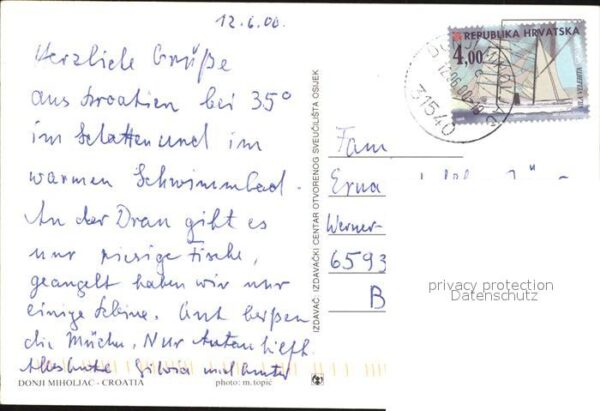 12.6.00.
Herzliche Grüße
aus Kroatien bei 35°
im Schatten und im
warmen Schwimmbad.
An der Drau gibt es
nur riesige Fische,
geangelt haben wir nur
einige kleine. Gut beißen
die Mücken. Nur Autan hilft.
Alles Gute Silvia und Gunter
DONJI MIHOLJAC - CROATIA
photo: m. topić
IZDAVAČ: IZDAVAČKI CENTAR OTVORENOG SVEUČILIŠTA OSIJEK
REPUBLIKA HRVATSKA
4,00
31540
Fam
Erna
Werner-
6593
B
privacy protection
Datenschutz